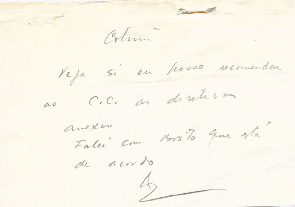 Veja si eu posso recomendar
ao C.C. as diretivas
anexas
Falei com Brito que está
de acordo